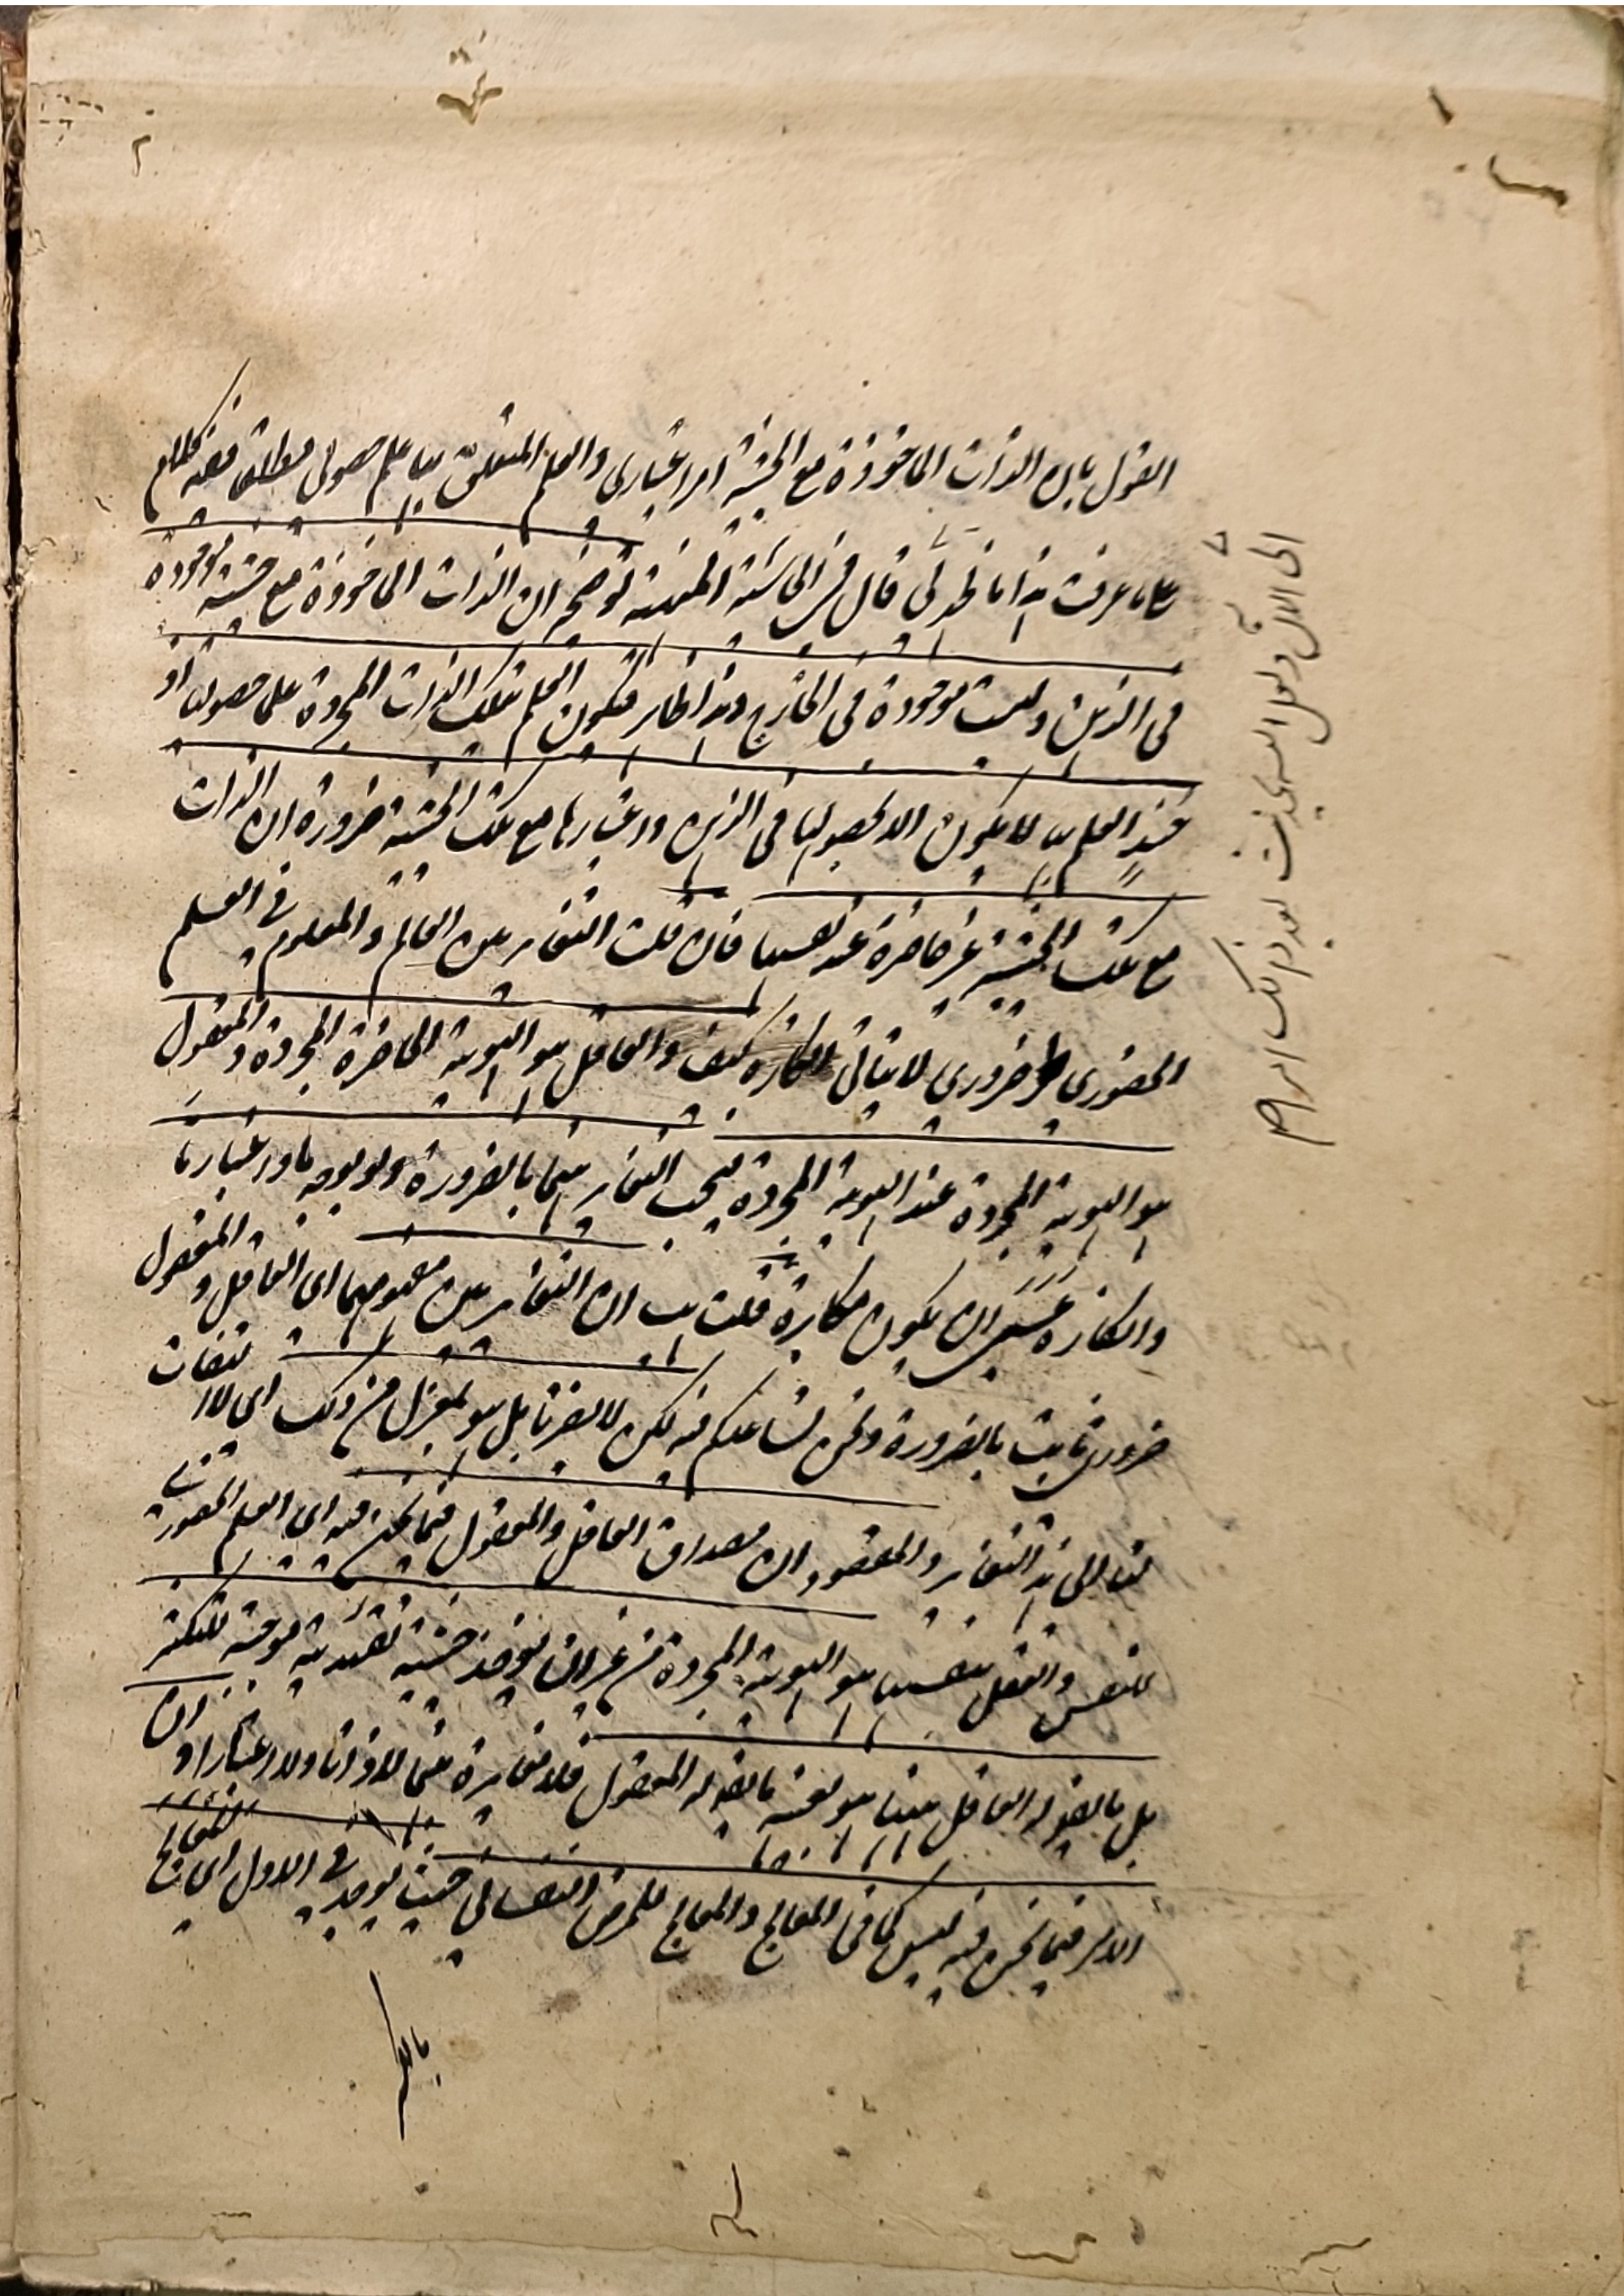 القول بان الذات الماخوذة مع الحيثية امر اعتباري والعلم المتعلق بها علم حصولي مطلقا ففيه كلام
على ما عرفت هذا ما نحو لي قال في الحاشية المنهية توضيحه ان الذات الماخوذة مع حيثية موجودة
في الذهن وليست موجودة في الخارج وهذا ظاهر فيكون العلم بتلك الذات المجردة علما حصوليا اذ
حينئذ العلم بها لا يكون الا بحصولها في الذهن واعتبارها مع تلك الحيثية ضرورة ان الذات
مع تلك الحيثية غير حاضرة عند نفسها فان قلت التغاير بين العالم والمعلوم في العلم
الحضوري ضروري لا يتاتى انكاره كيف والعاقل هو الهوية الحاضرة المجردة والمعقول
هو الهوية المجردة عند الهوية المجردة فيجب التغاير بينهما بالضرورة ولو بوجه ما واعتبار ما
وانكاره عسى ان يكون مكابرة قلت هب ان التغاير بين مفهوميهما اي العاقل والمعقول
ضروري ثابت بالضرورة ونحن نساعدكم فيه لكن لا يضرنا بل هو بمعزل من ذلك اي لا التفات
لنا الى هذا التغاير والمقصود ان مصداق العاقل والمعقول فيما نحن فيه اي العلم الحضوري
للنفس والعقل بنفسها هو الهوية المجردة من غير ان يوخذ حيثية تقييدية موجبة للتكثر
بل ما يصدق له العاقل ههنا هو بعينه ما يصدق له المعقول فلا مغايرة بينهما لا ذاتا ولا اعتبارا وان
الامر فيما نحن فيه ليس كما في المعالج والمعالج للمرض النفساني حيث يوجد في الاول اي المعالج
الى الآن ولعل الله يحدث بعد ذلك امرا